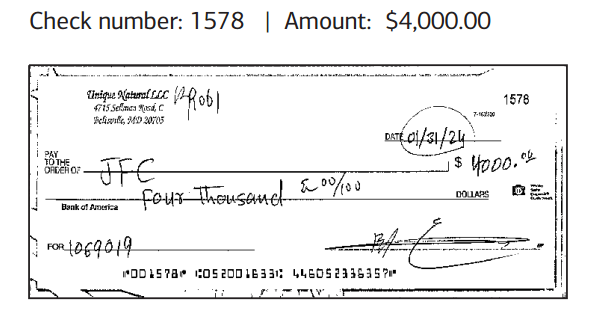 Check number: 1578 | Amount: $4,000.00
Unique Natural LLC
4715 Sellman Road, C
Beltsville, MD 20705
1578
DATE 01/31/24
PAY
TO THE
ORDER OF JFC $ 4000.00
Four Thousand & 00/100 DOLLARS
Bank of America
FOR 1069019
⑈001578⑈ ⑆052001633⑆ 446052336357⑈